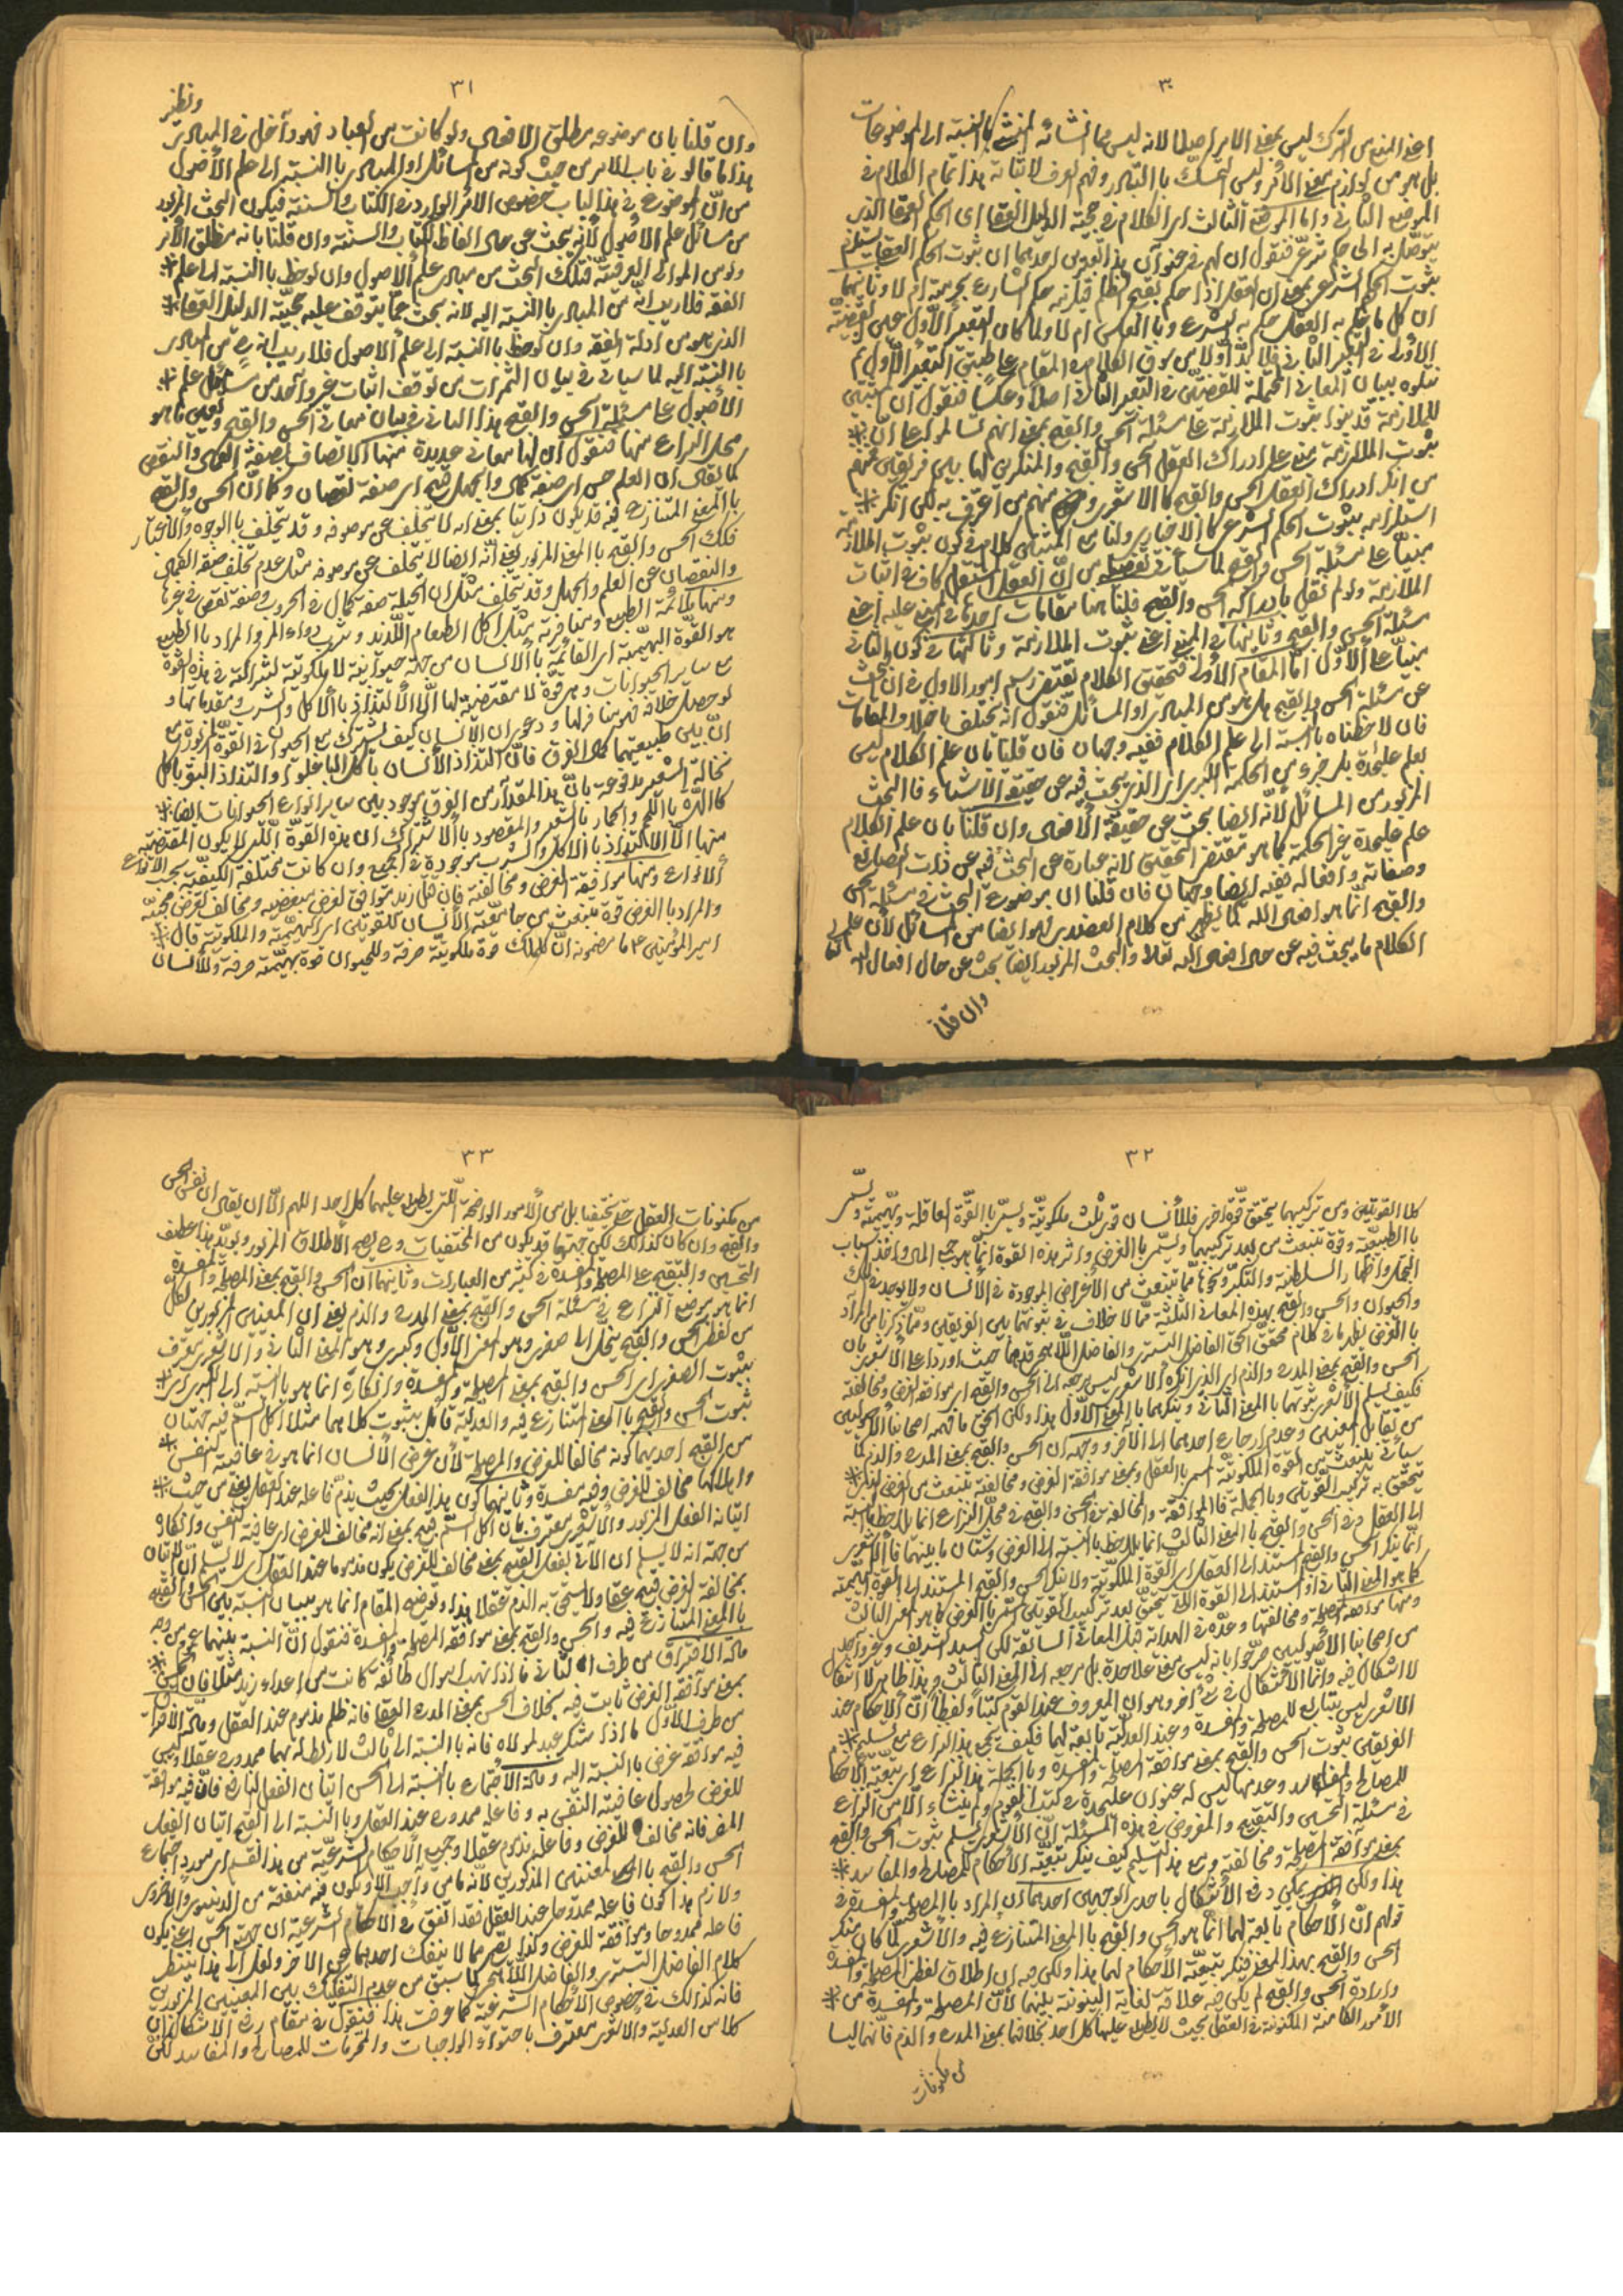 ٣٠
بل هو من لوازم معنى الأمر وليس التمسك باالتبادر وفهم العرف لاثباته هذا تمام الكلام في
الموضع الثاني واما الموضع الثالث اى الكلام في حجية الدليل العقلى اى الحكم العقلى الذي
يتوصل به الى حكم شرعى فنقول ان لهم في عنوان هذا
ثبوت الحكم الشرعى بمعنى ان العقل اذا حكم بقبح الظلم فيلزمه حكم الشارع بحرمته ام لا وثانيهما
ان كل ما حكم به العقل حكم به الشرع وباالعكس ام لا ولما كان التعبير الأول عين القضيّة
الأولى في التعبير الثاني فلا بد أولا من سوق الكلام في المقام على طبق التعبير الأول ثم
نتلوه ببيان المعانى المحتملة للقضيتين في التعبير الثاني اصلا وعكسا فنقول ان المثبتين
للملازمة قد بنوا ثبوت الملازمة على مسئلة الحسن والقبح بمعنى انهم تسالموا على انّ
ثبوت الملازمة مبنى على ادراك العقل الحسن والقبح والمنكرين لها بين فريقين منهم
من انكر ادراك العقل الحسن والقبح كاالاشعرى ومنهم من اعترف به لكن انكر
استلزامه ثبوت الحكم الشرعى كاالاخبارى ولنا مع المثبتين كلام في كون ثبوت الملازمة
مبنيا على مسئلة الحسن والقبح لما سيأتى تفصيله من انّ العقل المستقل كاف في اثبات
الملازمة ولو لم نقل بادراكه الحسن والقبح فلنا هنا مقامات احدها في المبنى عليه اعنى
مسئلة الحسن والقبح وثانيها في المبنى اعنى ثبوت الملازمة وثالثها في كون الثاني
مبنيا على الأول امّا المقام الأول فتحقيق الكلام يقتضى رسم امور الاول في ان البحث
عن مسئلة الحسن والقبح هل هو من المبادى او المسائل فنقول انه يختلف باختلاف المقامات
فان لاحظناه باالنسبة الى علم الكلام ففيه وجهان فان قلنا بان علم الكلام ليس
بعلم عليحدة بل جزء من الحكمة الكبرى الذي يبحث فيه عن حقيقة الاشياء فاالبحث
المزبور من المسائل لأنه ايضا بحث عن حقيقة الأفعال وان قلنا بان علم الكلام
علم عليحدة غير الحكمة كما هو مقتضى التحقيق لانه عبارة عن البحث فيه عن ذات الصانع
وصفاته وافعاله ففيه ايضا وجهان فان قلنا ان موضوع البحث في مسئلة الحسن
والقبح انما هو افعال الله كما يظهر من كلام العضدى فهو ايضا من المسائل لأن علم
الكلام ما يبحث فيه عن حال افعال الله تعالى والبحث المزبور ايضا بحث عن حال افعال الله
وان قلنا
٣١
وان قلنا بان موضوعه مطلق الافعال ولو كانت من العباد فهو داخل في المبادى
ونظير
هذا ما قالوه في باب الامر من حيث كونه من المسائل او المبادى باالنسبة الى علم الأصول
من انّ الموضوع في هذا الباب خصوص الأمر الوارد في الكتاب والسنة فيكون البحث المزبور
من مسائل علم الأصول لأنه يبحث عن حال الفاظ الكتاب والسنة وان قلنا بانه مطلق الأمر
ولو من الموالى العرفية فتلك البحث من مبادى علم الاصول وان لوحظ باالنسبة الى علم
الفقه فلا ريب انه من المبادى باالنسبة اليه لانه بحث عمّا يتوقف عليه حجية الدليل العقلى
الذي هو من ادلة الفقه وان لوحظ باالنسبة الى علم الاصول فلا ريب انه من المبادى
باالنسبة اليه لما سيأتى في بيان الثمرات من توقف اثبات غير واحد من مسائل علم
الأصول على مسئلة الحسن والقبح هذا الثاني في بيان معانى الحسن والقبح وتعيين ما هو
محل النزاع منها فنقول ان لها معانى عديدة منها الاتصاف بصفة الكمال والنقص
كما يقال ان العلم حسن اى صفة كمال والجهل قبيح اى صفة نقصان وكما انّ الحسن والقبح
باالمعنى المتنازع فيه قد يكون ذاتيا بمعنى انه لا يتخلف عن موصوفه وقد يتخلف باالوجوه والأعتبار
فكك الحسن والقبح باالمعنى المزبور يعنى انه ايضا لا يتخلف عن موصوفه مثل عدم تخلف صفة الكمال
والنقصان عن العلم والجهل وقد يتخلف مثل ان الحيلة صفة كمال في الحروب وصفة نقص في غيرها
ومنها ملائمة الطبع ومنافرته مثل اكل الطعام اللذيذ وشرب دواء المر والمراد باالطبع
هو القوة البهيميّة اى القائمة باالأنسان من جهة حيوانية لا ملكوتية لشراكته في هذه القوة
مع ساير الحيوانات وهى قوة لا مقتضى لها الّا الألتذاذ باالاكل والشرب ومقدماتها و
لو حصل خلافه فهو منافر لها ودعوى ان الانسان كيف يشترك مع الحيوان في القوة المزبورة مع
انّ بين طبيعتيهما كمال الفرق فانّ التذاذ الأنسان باكل الباغلوا والتذاذ البقر باكل
نخالة الشعير مدفوعة بانّ هذا المقدار من الفرق موجود بين ساير انواع الحيوانات ايضا
كاالهرّة باللحم والحمار باالشعير والمقصود باالأشتراك ان هذه القوة التى لا يكون المقتضى
منها الّا الالتذاذ باالاكل والشرب موجودة في الجميع وان كانت مختلفة الكيفيّة بحسب الانواع
ومنها موافقة الغرض ومخالفته فان قتل زيد موافق لغرض مبغضيه ومخالف لغرض محبيّه
والمراد باالغرض قوة تنبعث من جامعية الأنسان للقوتين اى البهيميّة والملكوتية قال
امير المؤمنين ع ما مضمونه انّ للملك قوة ملكوتيّة صرفة وللحيوان قوة بهيميّة صرفة وللأنسان
٣٢
كلا القوتين ومن تركيبهما يتحقق قوة اخرى فللأنسان قوى ثلث ملكوتيّة ويسمّى باالقوة العاقلة وبهيميّة ويسمّى
باالطبيعيّة وقوة تنبعث من بعد تركيبهما ويسمّى باالغرض واثر هذه القوة انما هو حبّ المال واخذ اسباب
التجمّل واظهار السلطنة والتكبّر ونحوها مما تنبعث من الأغراض الموجودة في الأنسان ولا يوجد في الملك
والحيوان والحسن والقبح بهذه المعانى الثلثة مما لا خلاف في ثبوتهما بين الفريقين وممّا ذكرنا من المراد
باالغرض يظهر ما في كلام
الحسن والقبح بمعنى المدح والذم الذي انكره الأشعرى ليس مرجعه الى الحسن والقبح اى موافقة الغرض ومخالفته
فكيف يسلم الأشعرى ثبوتهما باالمعنى الثاني وينكرهما باالمعنى الأول هذا ولكن الحق ما فهمه اصحابنا الأصوليين
من تقابل المعنيين وعدم ارجاع احدهما الى الآخر ووجهه ان الحسن والقبح بمعنى المدح والذم كما
سيأتى ينبعث من القوة الملكوتية المسمى باالعقل وبمعنى موافقة الغرض ومخالفته ينبعث من الغرض الذي
يتحقق به تركيب القوتين وباالجملة فاالموافقة والمخالفة في الحسن والقبح في محل النزاع انما يلاحظ باالنسبة
الى العقل وفي الحسن والقبح باالمعنى الثالث انما يلاحظ باالنسبة الى الغرض وشتان ما بينهما فاالأشعرى
انما ينكر الحسن والقبح المستند الى العقل اى القوة الملكوتية ولا ينكر الحسن والقبح المستند الى القوة البهيميّة
كما هو المعنى الثاني او المستند الى القوة التى يتحقق بعد تركيب القوتين المسمى باالغرض كما هو المعنى الثالث
ومنها موافقة المصلحة ومخالفتها وعدّه في الهداية قبل المعانى السابقة لكن السيد الشريف وغير واحد
من اصحابنا الأصوليين صرّحوا بانه ليس معنى علاحدة بل مرجعه الى المعنى الثالث وهذا ظاهر لا اشكال
لا اشكال فيه وانما الأشكال في شئ آخر وهو ان المعروف عند القوم كتبا ولفظا انّ الأحكام عند
الاشعرى ليس بتابع للمصلحة والمفسدة وعند العدلية تابعة لهما فكيف يجمع هذا النزاع مع تسليم
الفريقين ثبوت الحسن والقبح بمعنى موافقة المصلحة والمفسدة وباالجملة هذا النزاع اى تبعيّة الأحكام
للمصالح والمفاسد وعدمها ليس له عنوان عليحدة في كتب القوم ولم ينشاء الّا من النزاع
في مسئلة التحسين والتقبيح والمفروض في هذه المسئلة انّ الأشعرى يسلم ثبوت الحسن والقبح
بمعنى موافقة المصلحة ومخالفته ومع هذا التسليم كيف ينكر تبعيّة الأحكام للمصالح والمفاسد
هذا ولكن يمكن دفع الأشكال باحد الوجهين احدهما ان المراد باالمصلحة والمفسدة في
قولهم انّ الأحكام تابعة لهما انما هو الحسن والقبح باالمعنى المتنازع فيه والأشعرى لمّا كان منكر
الحسن والقبح بهذا المعنى فينكر تبعيّة الأحكام لهما هذا ولكن فيه ان اطلاق لفظ المصلحة والمفسدة
وارادة الحسن والقبح لم يكن فيه علاقة لغاية البينونة بينهما لأنّ المصلحة والمفسدة من
الأمور الكامنة المكنونة في العقل بحيث لا يطلع عليهما كل احد بخلافهما بمعنى المدح والذم فانهما ليسا
من مكنونات
٣٣
من مكنونات العقل حتى يختفيا بل من الأمور الواضحة التى يطلع عليهما كل احد اللهم الّا ان يقال ان نفس الحسن
والقبح وان كان كذلك لكن جهتهما قد يكون من المختفيات ومعه يصح الأطلاق المزبور ويؤيد هذا عطف
التحسين والتقبيح على المصلحة والمفسدة في كثير من العبارات وثانيهما ان الحسن والقبح بمعنى المصلحة والمفسدة
انما هو موضع النزاع في مسئلة الحسن والقبح بمعنى المدح والذم يعنى ان المعنيين المزبورين
من لفظ الحسن والقبح ينحل الى صغرى وهو المعنى الأول وكبرى وهو المعنى الثاني والاشعرى يعترف
بثبوت الصغرى اى الحسن والقبح بمعنى المصلحة والمفسدة وانكاره انما هو باالنسبة الى الكبرى اى
ثبوت الحسن والقبح باالمعنى المتنازع فيه والعدلية قائل بثبوت كلاهما مثلا اكل السم فيه جهتان
من القبح احديهما كونه مخالفا للغرض والمصلحة لأن غرض الأنسان انما هو في عافية النفس
واهلاكها مخالف للغرض وفيه مفسدة وثانيهما كون هذا الفعل بحيث يذمّ فاعله عند العقل يعنى من حيث
اتيانه الفعل المزبور والأشعرى معترف بان اكل السم قبيح بمعنى انه مخالف للغرض اى عافية النفس وانكاره
من جهة انه لا يسلم ان الآتى بفعل القبيح بمعنى مخالف للغرض يكون مذموما عند العقل اى لا يسلم انّ الاتيان
بمخالفة الغرض قبيح عقلا ولا يستحق به الذم عقلا هذا وتوضيح المقام انما هو ببيان النسبة بين الحسن والقبح
باالمعنى المتنازع فيه والحسن والقبح بمعنى موافقة المصلحة والمفسدة فنقول انّ النسبة بينهما عموم من وجه
بمعنى موافقة الغرض ثابت فيه بخلاف الحسن بمعنى المدح العقلى فانه ظلم مذموم عند العقل ومادة الافتراق
فيه موافقة غرض باالنسبة اليه ومادة الأجتماع باالنسبة الى الحسن اتيان الفعل النافع فانّ فيه موافقة
للغرض لحصول عافية النفس به وفاعله ممدوح عند العقل وباالنسبة الى القبح اتيان الفعل
المضر فانه مخالف للغرض وفاعله مذموم عقلا وجميع الأحكام الشرعيّة من هذا القسم اى مورد اجتماع
الحسن والقبح باالمعنيين المذكورين لأنه ما من واجب الّا ويكون فيه منفعة من الدنيوى والأخروى
ولازم هذا كون فاعله ممدوحا عند العقل فقد اتفق في الأحكام الشرعيّة ان جهة الحسن اعنى كون
فاعله ممدوحا وموافقة للغرض وكذا يصير مما لا ينفك احدهما عن الاخر ولعل الى هذا ينظر
كلام الفاضل التسترى والفاضل اللاهيجى كما سبق من عدم التفكيك بين المعنيين المزبورين
فانه كذلك في خصوص الأحكام الشرعيّة كما عرفت هذا فنقول في مقام رفع الأشكال ان
كلا من العدلية والاشعرى معترف باحتواء الواجبات والمحرمات للمصالح والمفاسد لكن